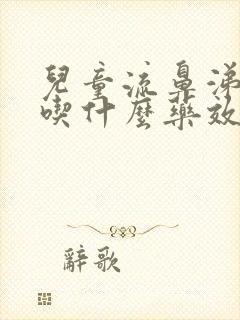 兒童流鼻涕
喫什麼藥效
辭歌